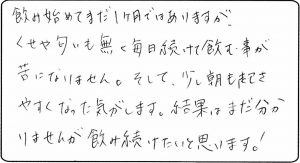 飲み始めてまだ1ヶ月ではありますが、
くせや匂いも無く毎日続けて飲む事が
苦になりません。そして、少し朝も起き
やすくなった気がします。結果はまだ分か
りませんが飲み続けたいと思います!